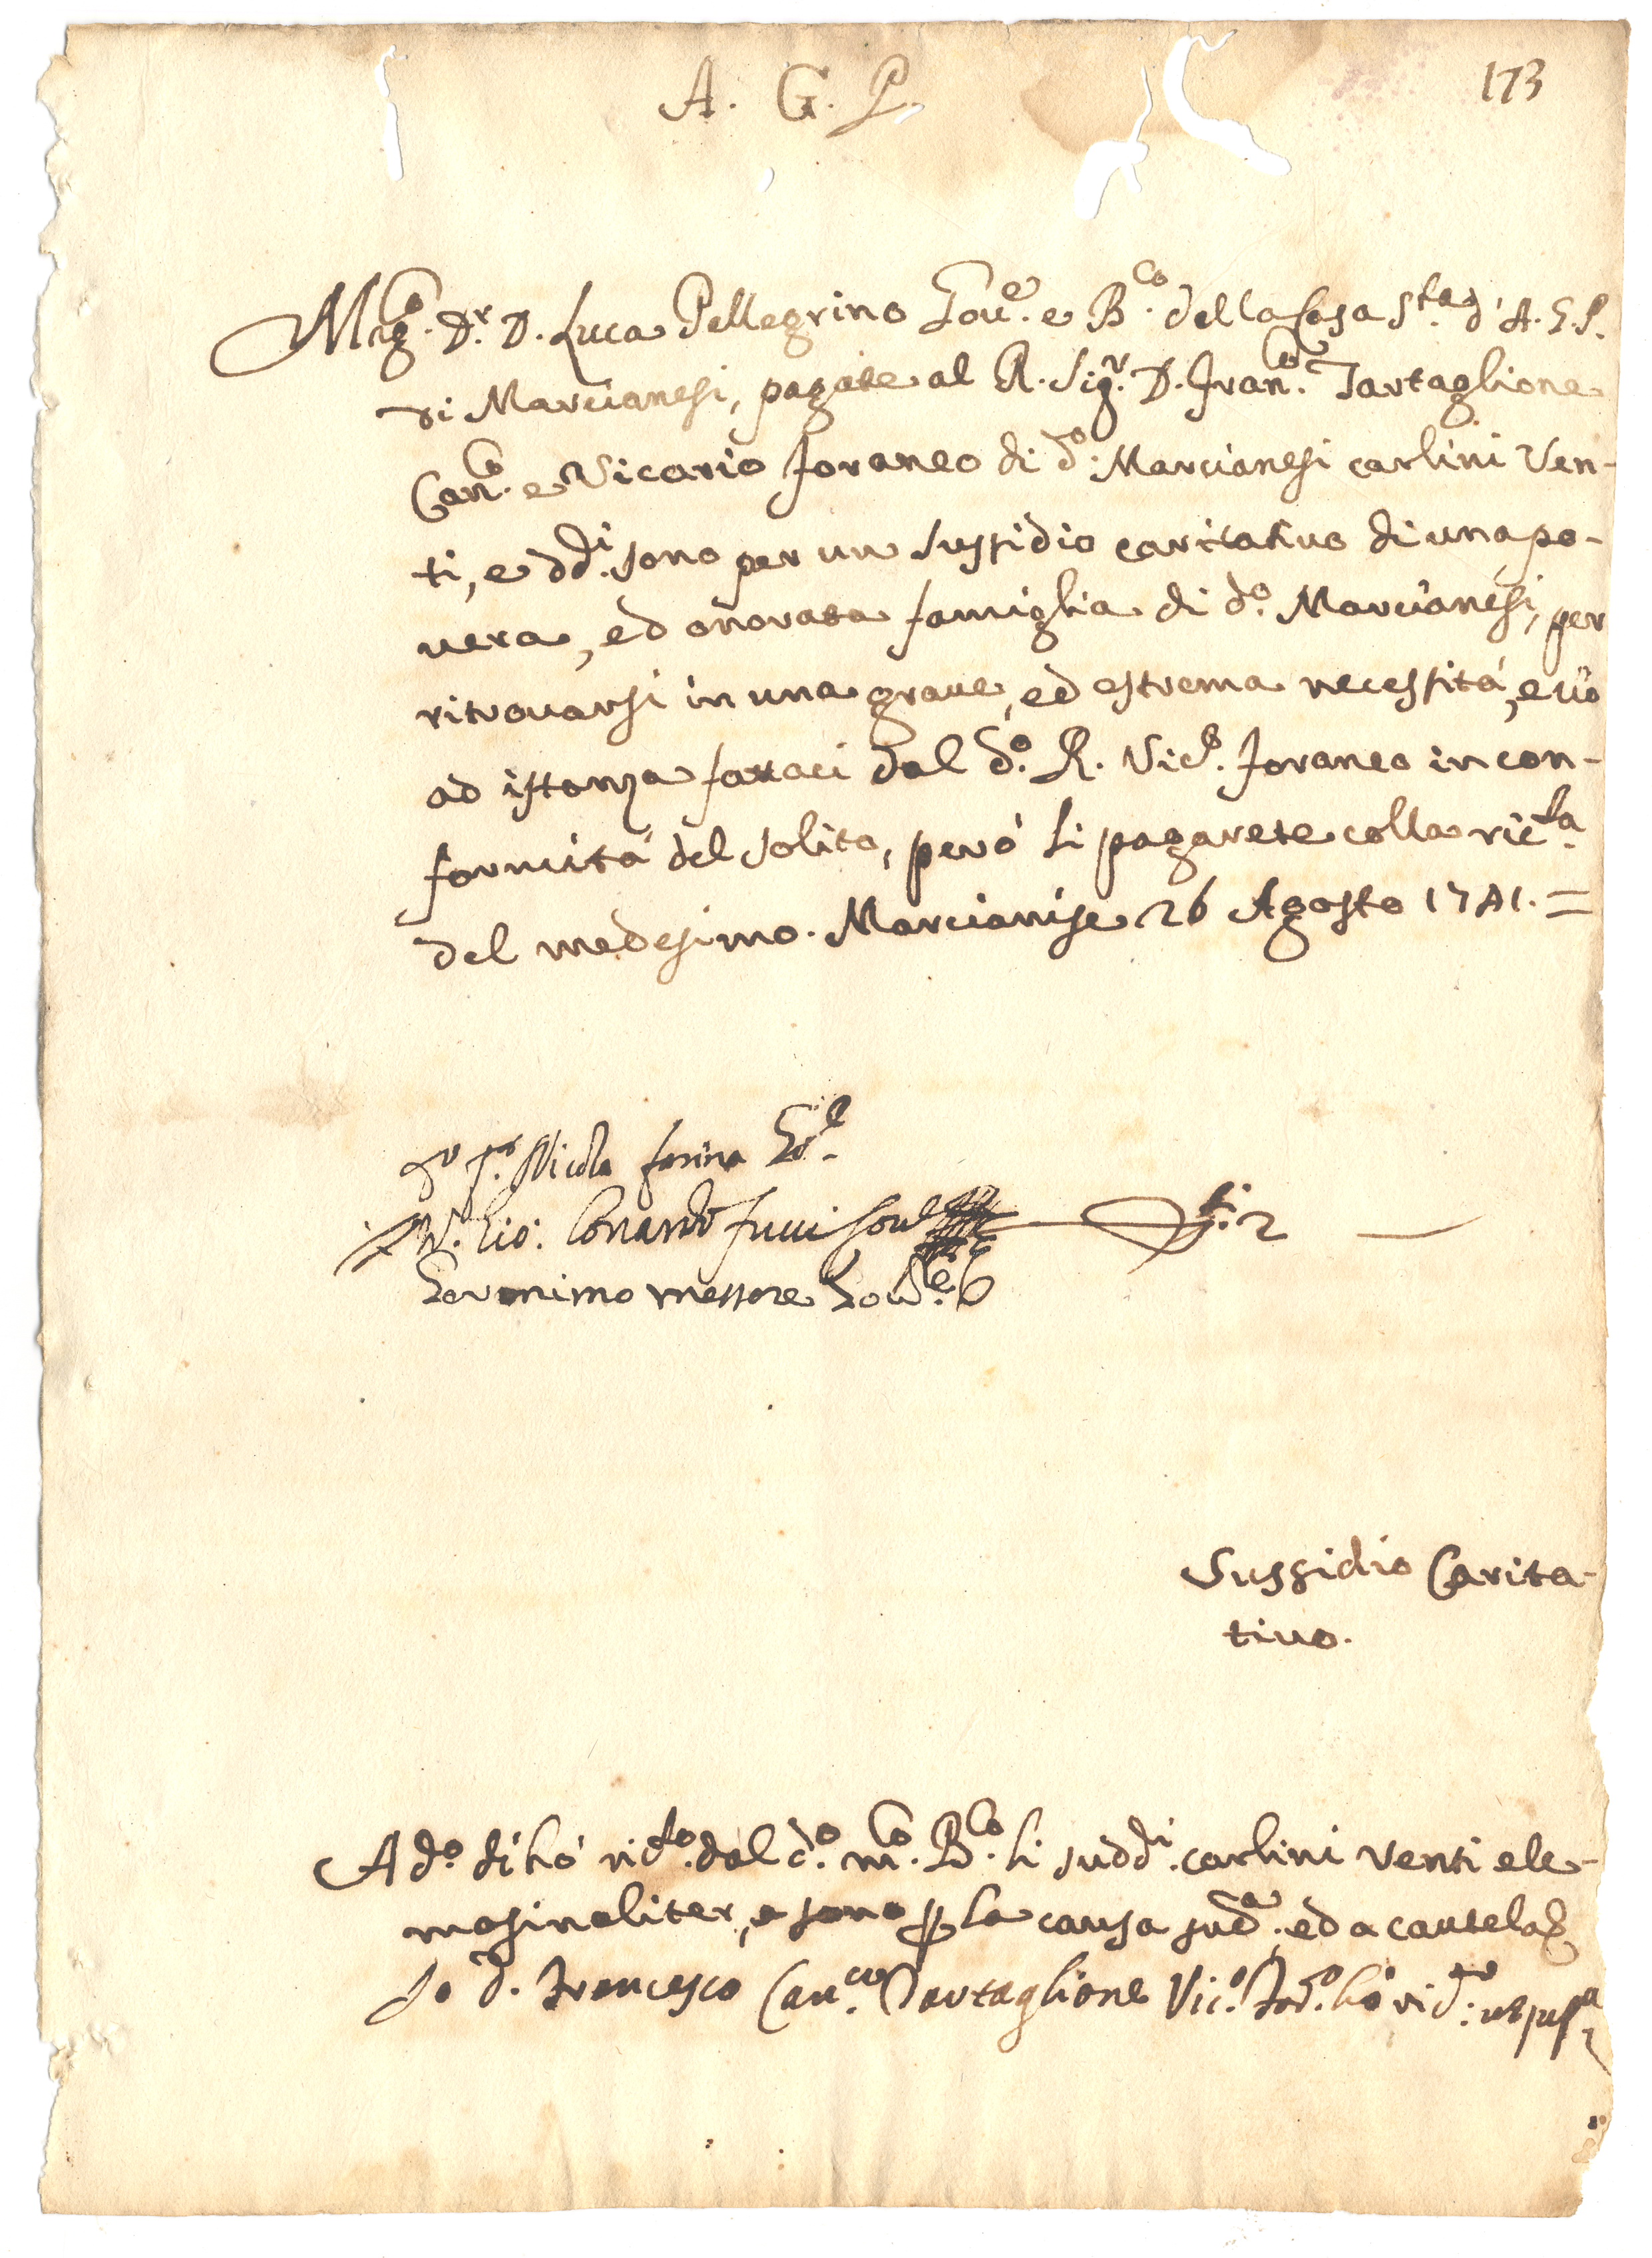 A. G. P.
173
Mag.co D.r D. Luca Pellegrino Gov.e e B.co della Casa S.ta d'A. G. P.
di Marcianesi, pagate al R. Sig.r D. Fran.co Tartaglione
Can.co e Vicario foraneo di d.o Marcianesi carlini Ven-
ti, e dd.i sono per un sussidio caritativo di una po-
vera, ed onorata famiglia di d.o Marcianesi, per
ritrovarsi in una grave, ed estrema necessità, e ciò
ad istanza fattaci dal d.o R. Vic.o foraneo in con-
formità del solito, però li pagarete colla ric.ta
del medesimo. Marcianise 26 Agosto 1741. =
Nicola farina
fucci
Geronimo messore Gov.e
2
Sussidio Carita-
tivo.
A d.o dì hò ric.to dal d.o m.co B.co li sudd.i carlini venti ele-
mosinaliter, e sono p la causa sud.a ed a cautela
Io D. Francesco Can.co Tartaglione Vic.o For.o hò ric.to ut sup.a